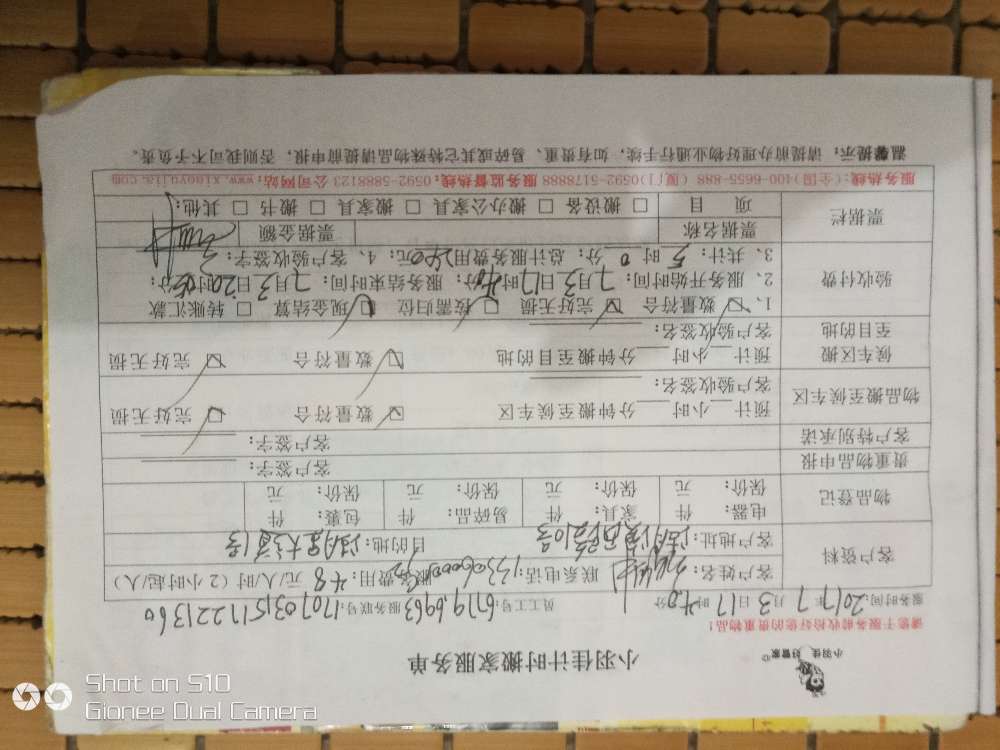 小羽佳 好管家
小羽佳计时搬家服务单
请您于服务前收捡好您的贵重物品!
服务时间: 2017年7月3日17时40分 员工工号: 6719,6963 服务联号: 1707031511221360
客户资料
客户姓名: 联系电话: 服务费用: 48 元/人/时(2小时/起)
客户地址: 目的地:
物品登记
电器: 件 家具: 件 易碎品: 件 包裹: 件
保价: 元 保价: 元 保价: 元 保价: 元
贵重物品申报 客户签字:
客户特别承诺 客户签字:
物品搬至候车区
预计 小时 分钟搬至候车区 数量符合 完好无损
客户验收签名:
候车区搬至目的地
预计 小时 分钟搬至目的地 数量符合 完好无损
客户验收签名:
验收付费
1、数量符合 完好无损 按需归位 现金结算 转账汇款
2、服务开始时间: 7月3日17时40分; 服务结束时间: 7月3日20时 分;
3、共计: 5时0分; 总计服务费用240元; 4、客户验收签字:
票据栏
票据名称 票据金额
项目 搬设备 搬办公家具 搬家具 搬书 其他:
服务热线:(全国)400-6655-888 (厦门)0592-5178888 服务监督热线:0592-5888123 公司网站:www.xiaoyujia.com
温馨提示: 请提前办理好物业通行手续, 如有贵重、易碎或其它特殊物品请提前申报, 否则我司不予负责。
Shot on S10
Gionee Dual Camera